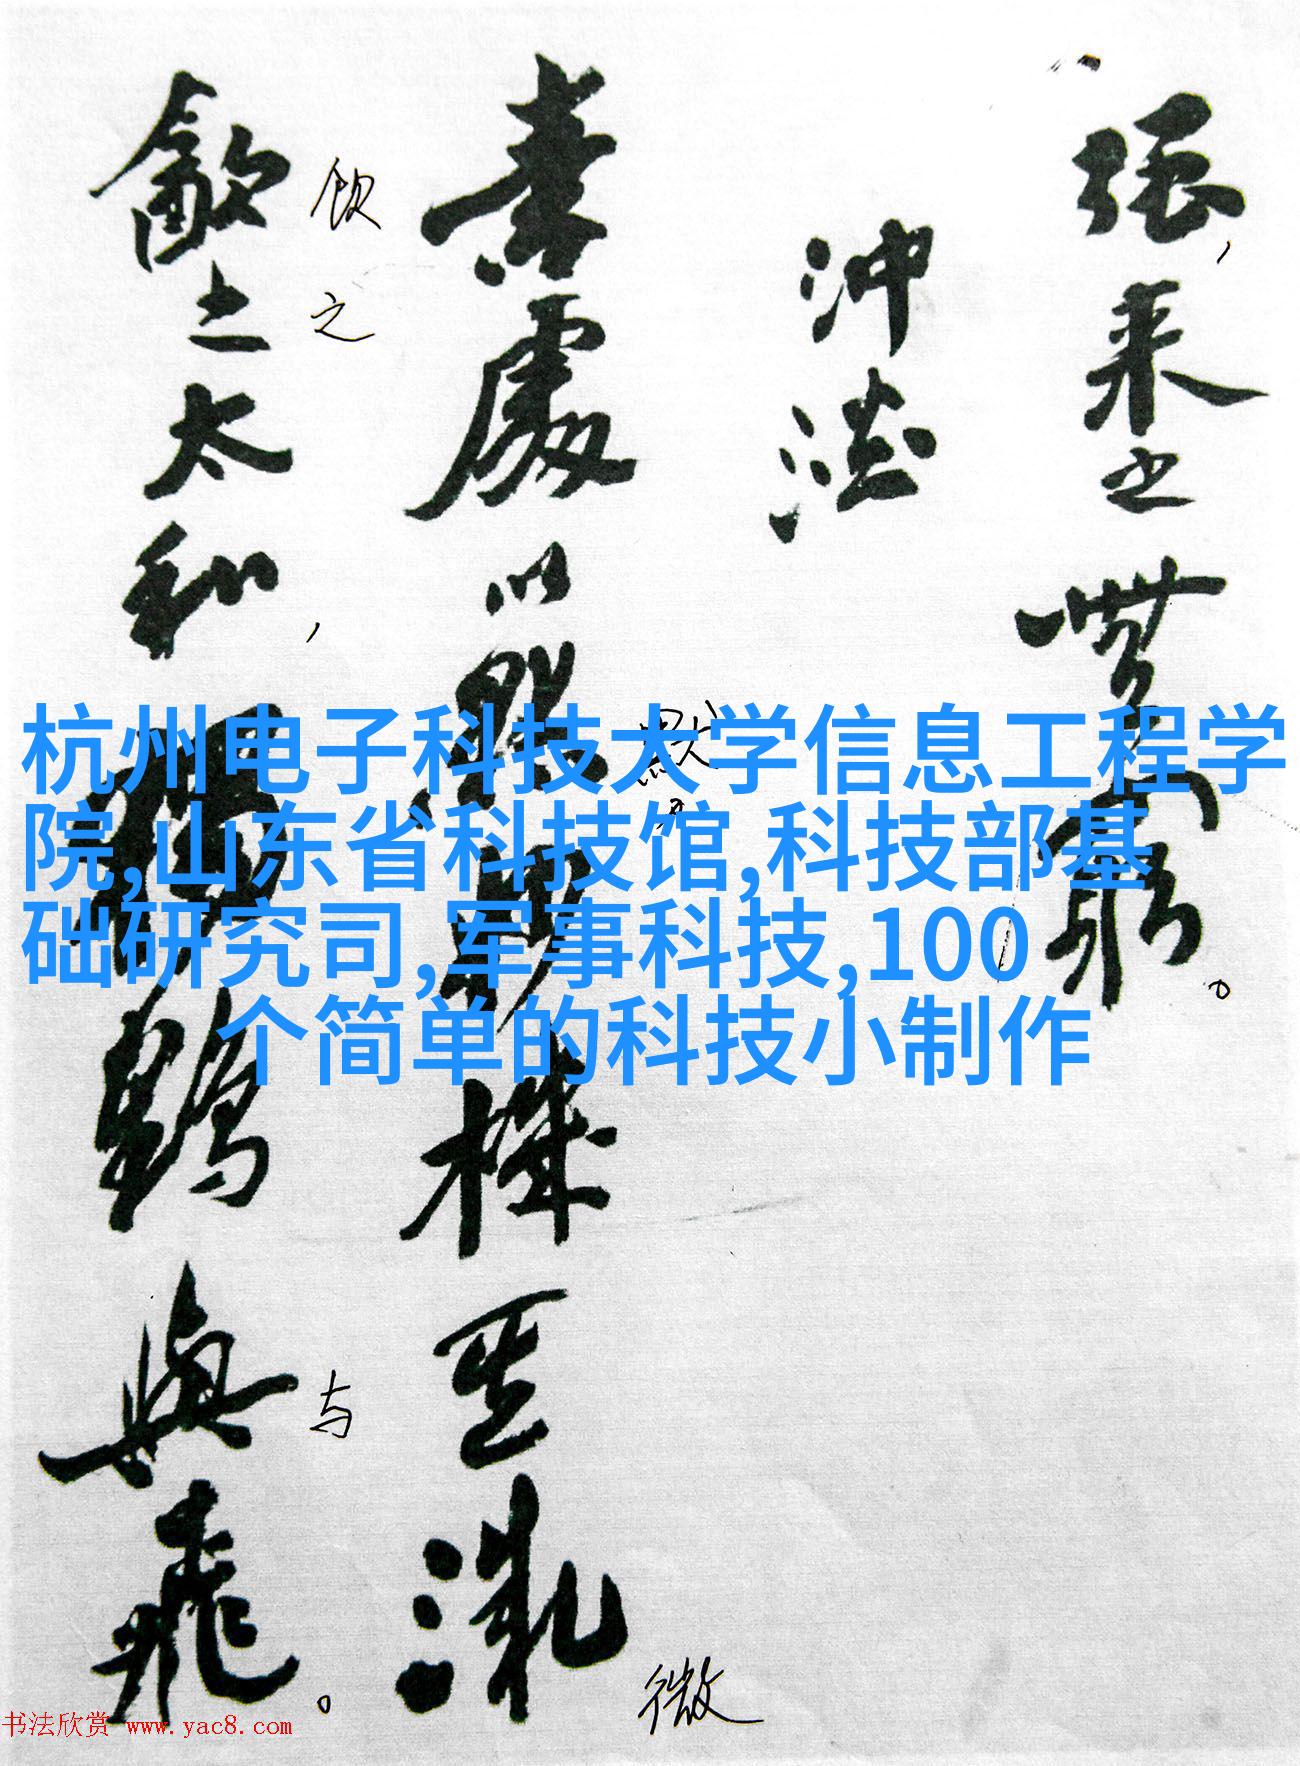 强,
来之無窮。
冲淡
素處以默妙機其微
默
微
飲之太和,獨鶴與飛。
饮之
与
杭州电子科技大学信息工程学
院,山东省科技馆,科技部基
础研究司,军事科技,100
个简单的科技小制作
书法欣赏 www.yac8.com